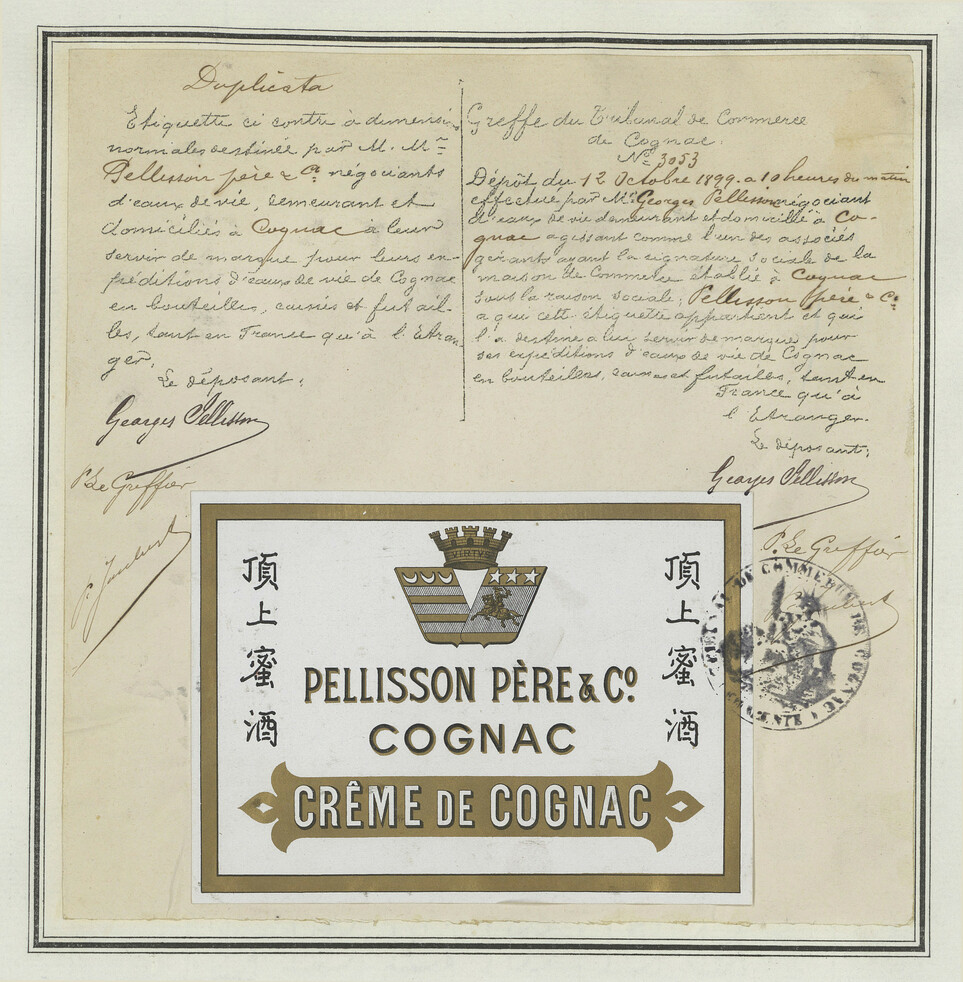 Duplicata
Etiquette ci contre à dimensions
normales destinée par M. M<sup>rs</sup>
Pellisson père & C<sup>ie</sup> négociants
d'eaux de vie, demeurant et
domiciliés à Cognac à leur
servir de marque pour leurs ex-
péditions d'eaux de vie de Cognac
en bouteilles, caisses et futail-
les, tant en France qu'à l'Etran-
ger.
Le déposant:
Georges Pellisson
P. Le Greffier
P. Joubert
Greffe du Tribunal de Commerce
de Cognac.
N° 3053
Dépôt du 12 Octobre 1899 à 10 heures du matin
effectué par M. Georges Pellisson négociant
d'eaux de vie demeurant et domicilié à Co-
gnac agissant comme l'un des associés
gérants ayant la signature sociale de la
maison de Commerce établie à Cognac
sous la raison sociale; Pellisson père & C<sup>ie</sup>
a qui cette étiquette appartient et qui
l'a destine a lui servir de marque pour
ses expéditions d'eaux de vie de Cognac
en bouteilles, caisses et futailles, tant en
France qu'à
l'Etranger.
Le déposant;
Georges Pellisson
P. Le Greffier
Joubert
TRIBUNAL DE COMMERCE DE COGNAC
頂上蜜酒
VIRTUS
頂上蜜酒
PELLISSON PÈRE & C<sup>o</sup>.
COGNAC
CRÊME DE COGNAC